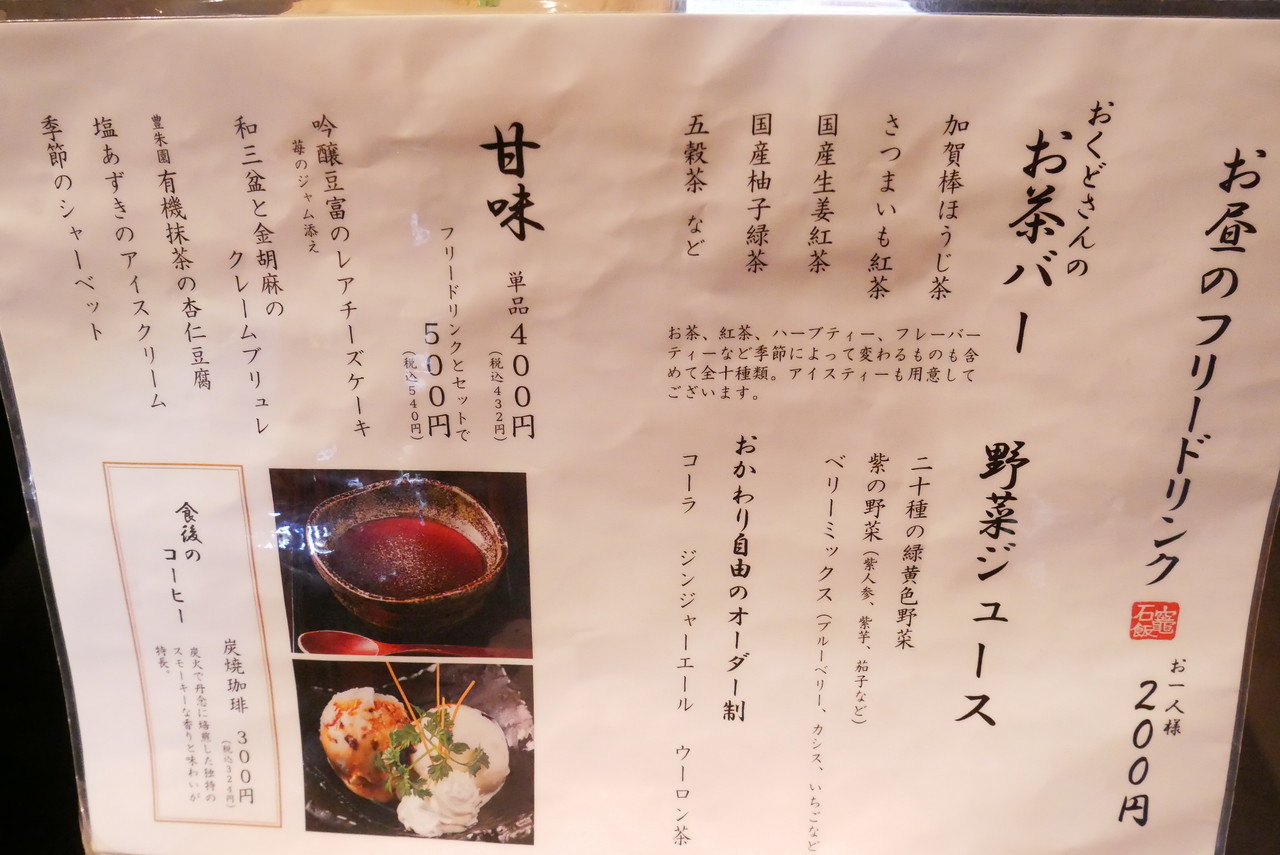 お昼のフリードリンク
竈
石飯
お一人様
200円
おくどさんの
お茶バー
加賀棒ほうじ茶
さつまいも紅茶
国産生姜紅茶
国産柚子緑茶
五穀茶 など
お茶、紅茶、ハーブティー、フレーバー
ティーなど季節によって変わるものも含
めて全十種類。アイスティーも用意して
ございます。
野菜ジュース
二十種の緑黄色野菜
紫の野菜(紫人参、紫芋、茄子など)
ベリーミックス(ブルーベリー、カシス、いちごなど
おかわり自由のオーダー制
コーラ ジンジャーエール ウーロン茶
甘味
単品400円
(税込432円)
フリードリンクとセットで
500円
(税込540円)
吟醸豆富のレアチーズケーキ
苺のジャム添え
和三盆と金胡麻の
クレームブリュレ
豊朱園 有機抹茶の杏仁豆腐
塩あずきのアイスクリーム
季節のシャーベット
食後の
コーヒー
炭焼珈琲 300円
(税込324円)
炭火で丹念に焙煎した独特の
スモーキーな香りと味わいが
特長。